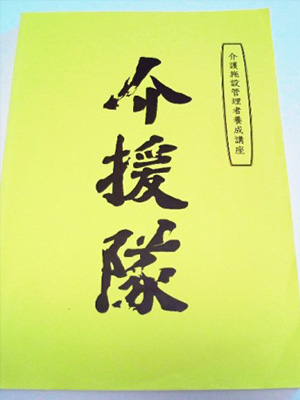 介護施設管理者養成講座
介援隊